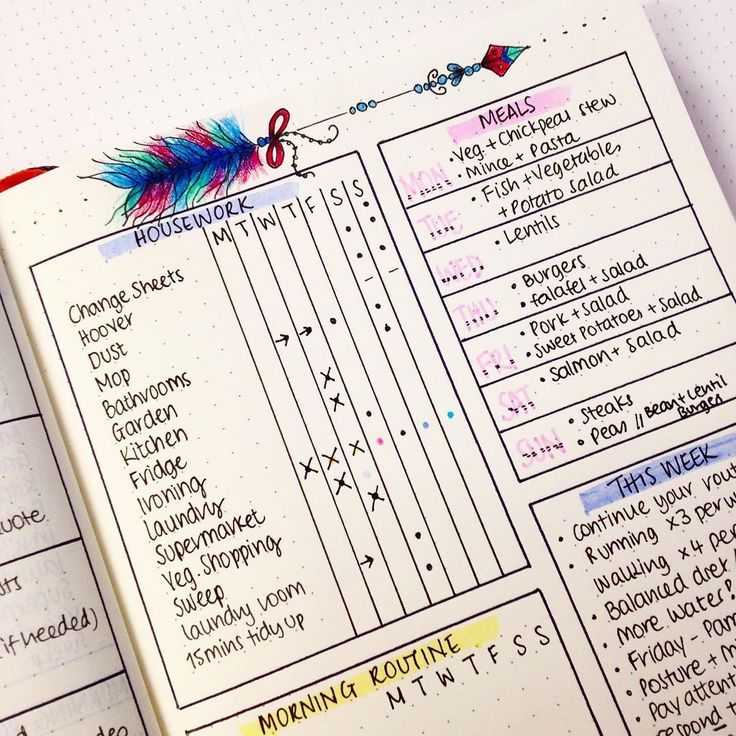 HOUSEWORK
M T W T F S S
Change Sheets
Hoover
Dust
Mop
Bathrooms
Garden
Kitchen
Fridge
Ironing
Laundry
Supermarket
Veg. Shopping
Sweep
Laundry room
15mins tidy up
MEALS
MON
• Veg + Chickpeas stew
• Mince + Pasta
TUE
• Fish + Vegetables
+ Potato Salad
WED
• Lentils
THU
• Burgers
• falafel + salad
FRI
• Pork + Salad
• Sweet Potatoes + Salad
SAT
• Salmon + Salad
SUN
• Steaks
• Peas // Bean + Lentil
Burger
THIS WEEK
• Continue your rout
• Running x3 per w
Walking x4 per
• Balanced diet
• More water!
• Friday - Pam
• Posture + m
• Pay attent
respond t
MORNING ROUTINE
M T W T F S S
uote
if needed)
deo